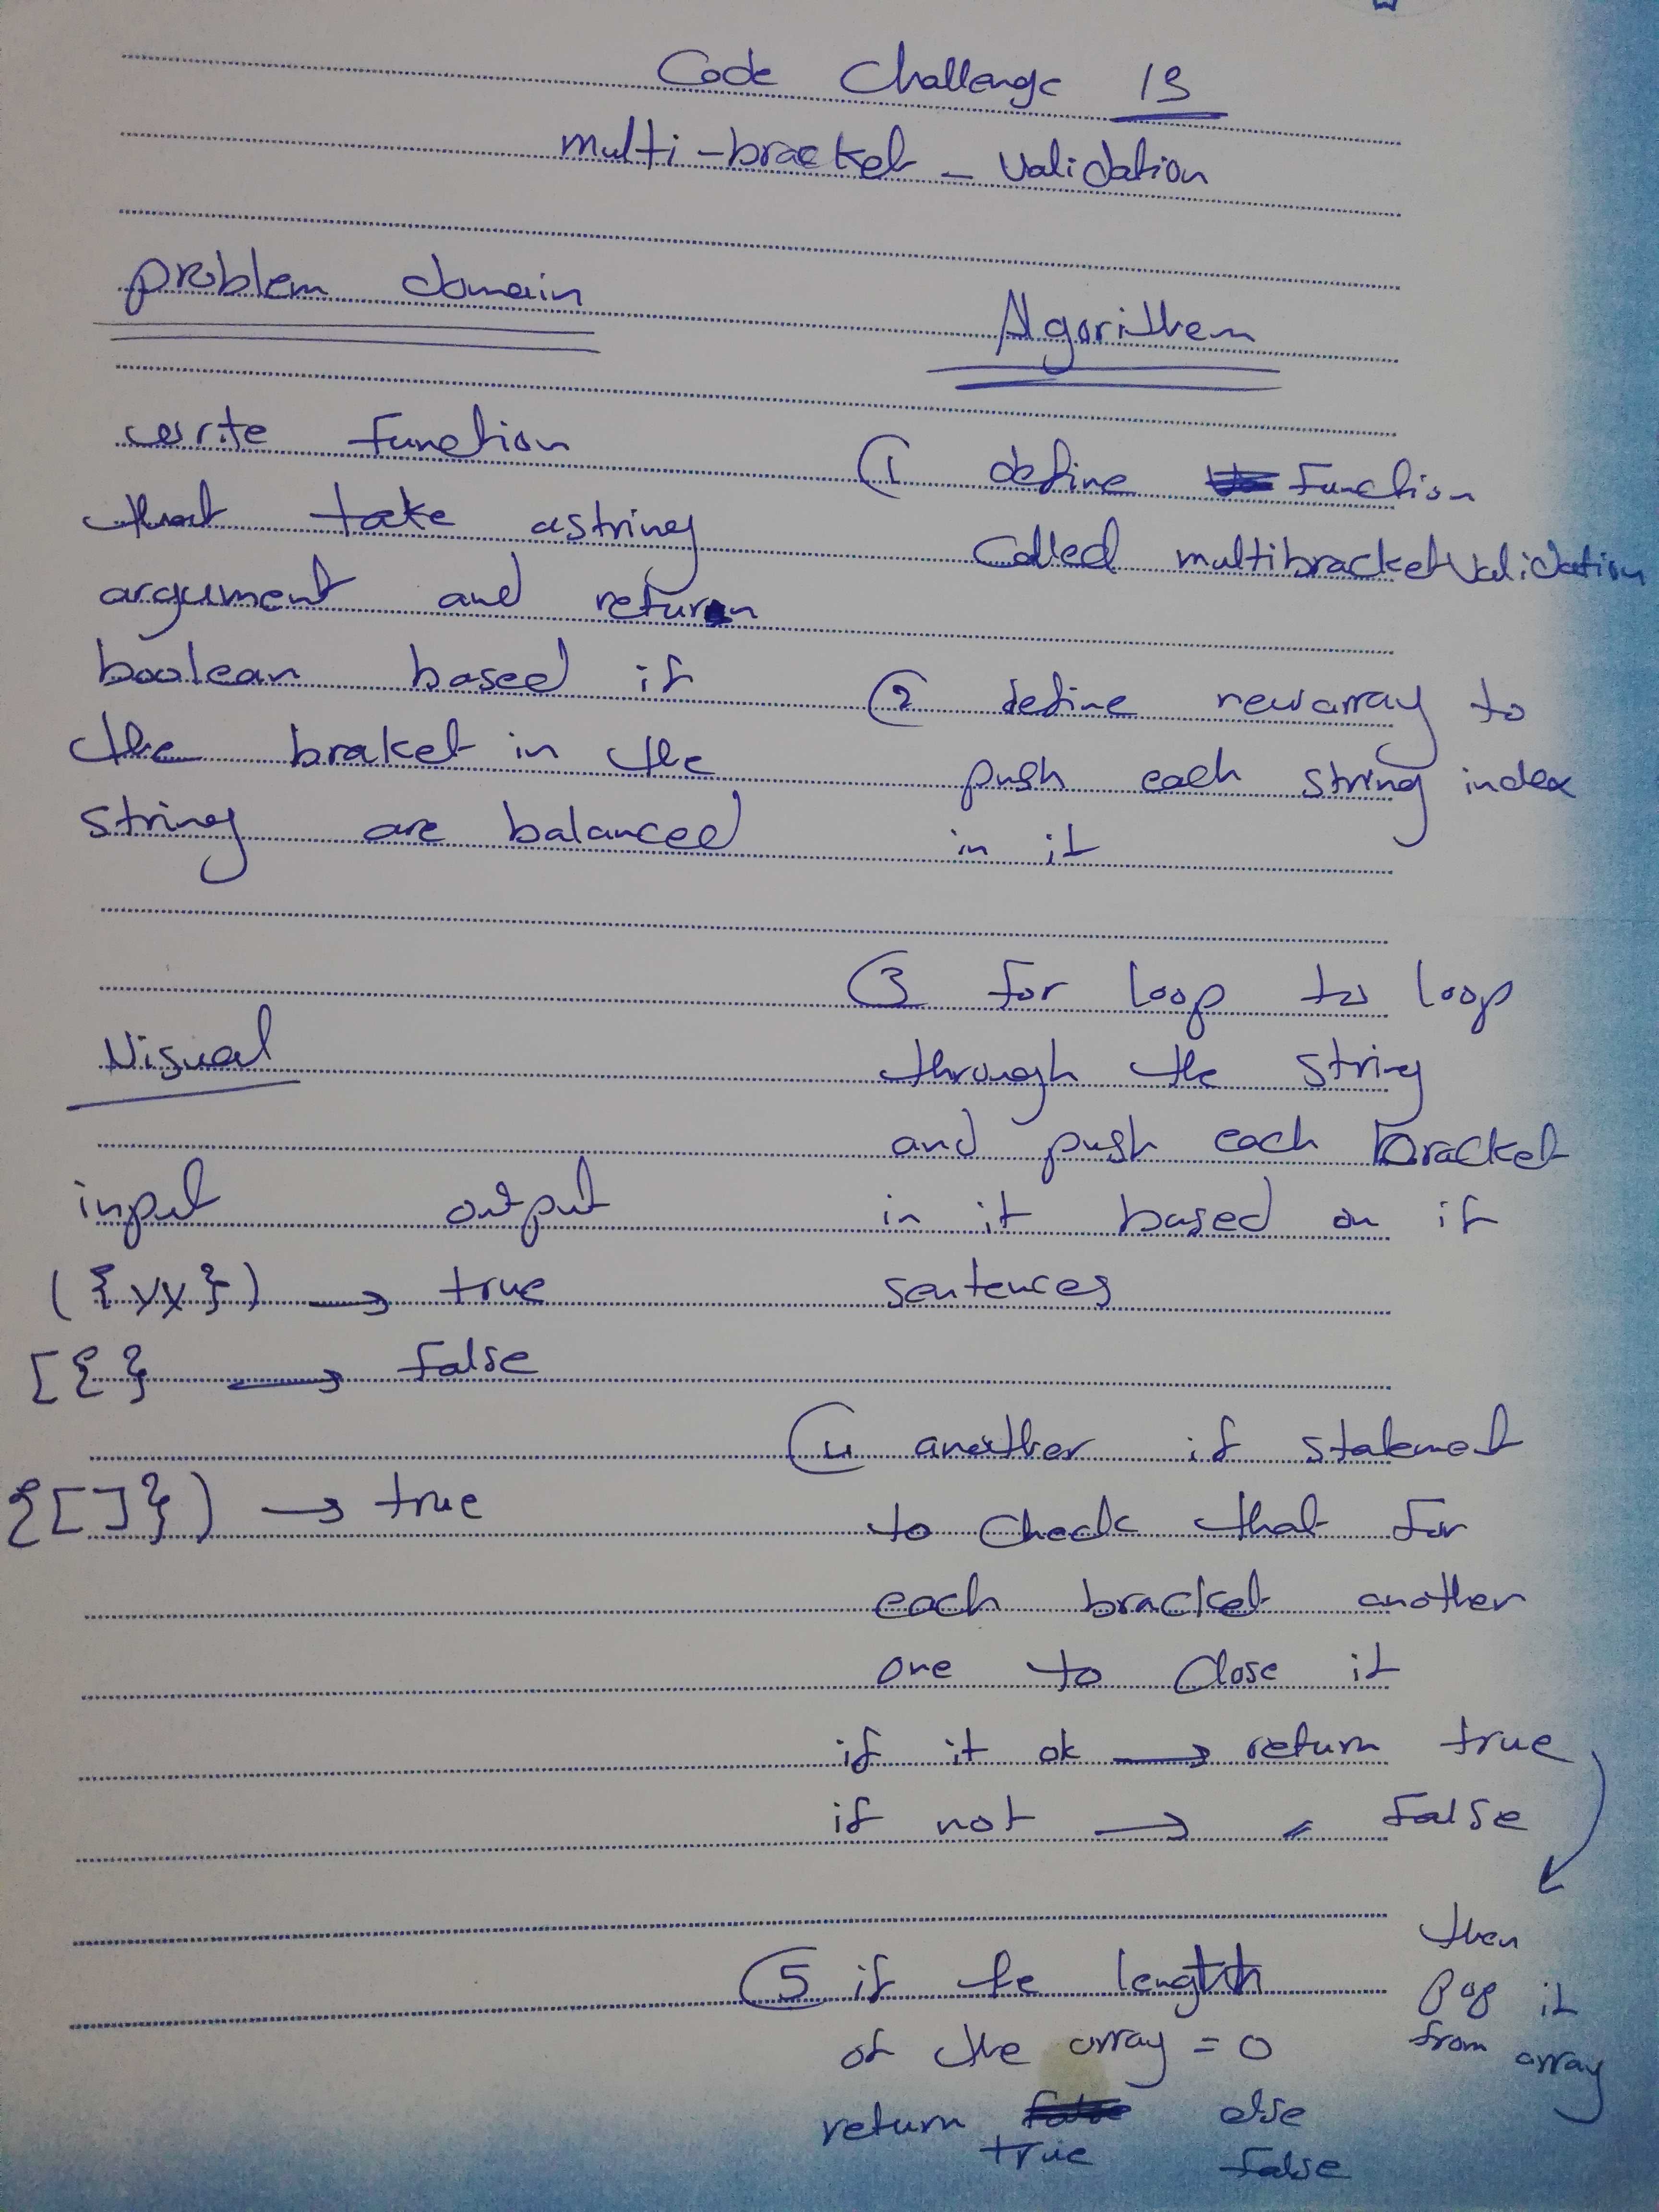 Code Challenge 13
multi-bracket-validation
problem domain
write function
that take a string
argument and return
boolean based if
the braket in the
string are balanced
Visual
input output
({yx}) → true
[{} → false
{[]}) → true
Algorithem
1 define function
called multibracketvalidation
2 define new array to
push each string index
in it
3 for loop to loop
through the string
and push each bracket
in it based on if
sentences
4 another if statemet
to check that for
each bracket another
one to close it
if it ok → return true
if not → 〃 false
then
pop it
from array
5 if the length
of the array = 0
return true else
false